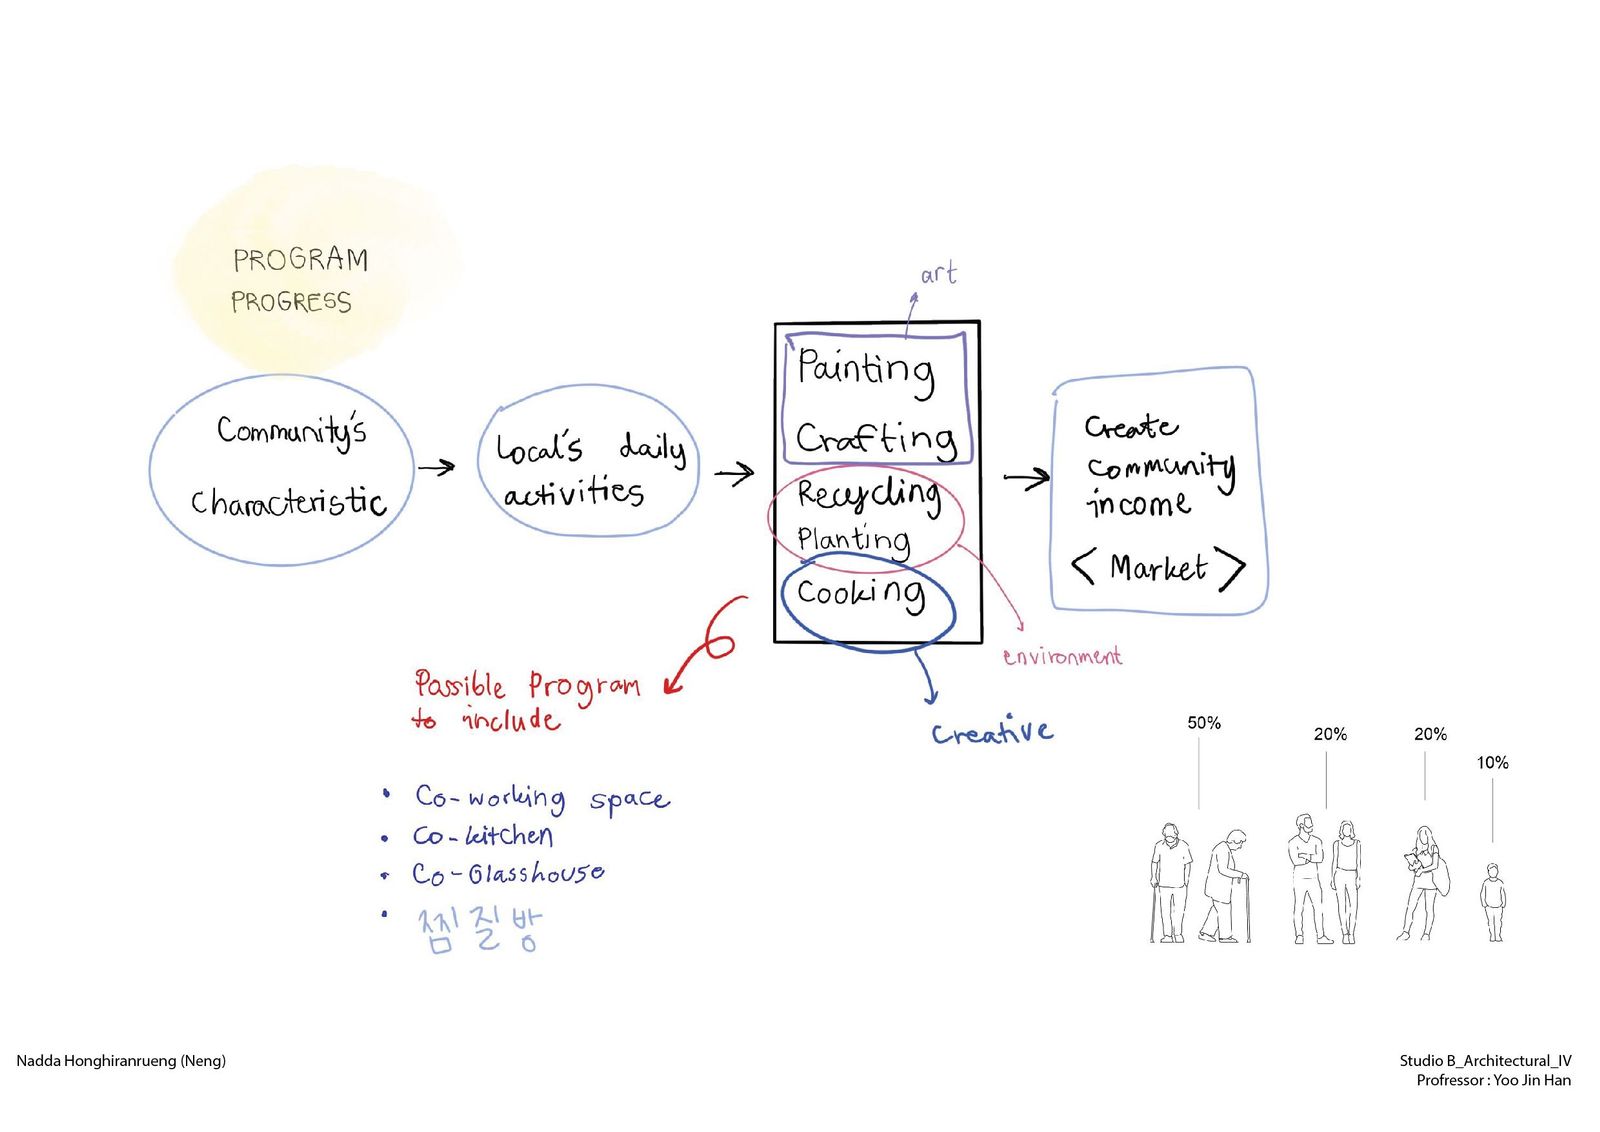 PROGRAM
PROGRESS
Community's
Characteristic
Local's daily
activities
art
Painting
Crafting
Recycling
Planting
Cooking
Create
community
income
< Market >
environment
Creative
Possible Program
to include
• Co-working space
• Co-kitchen
• Co-Glasshouse
• 찜질방
50%
20%
20%
10%
Nadda Honghiranrueng (Neng)
Studio B_Architectural_IV
Profressor : Yoo Jin Han